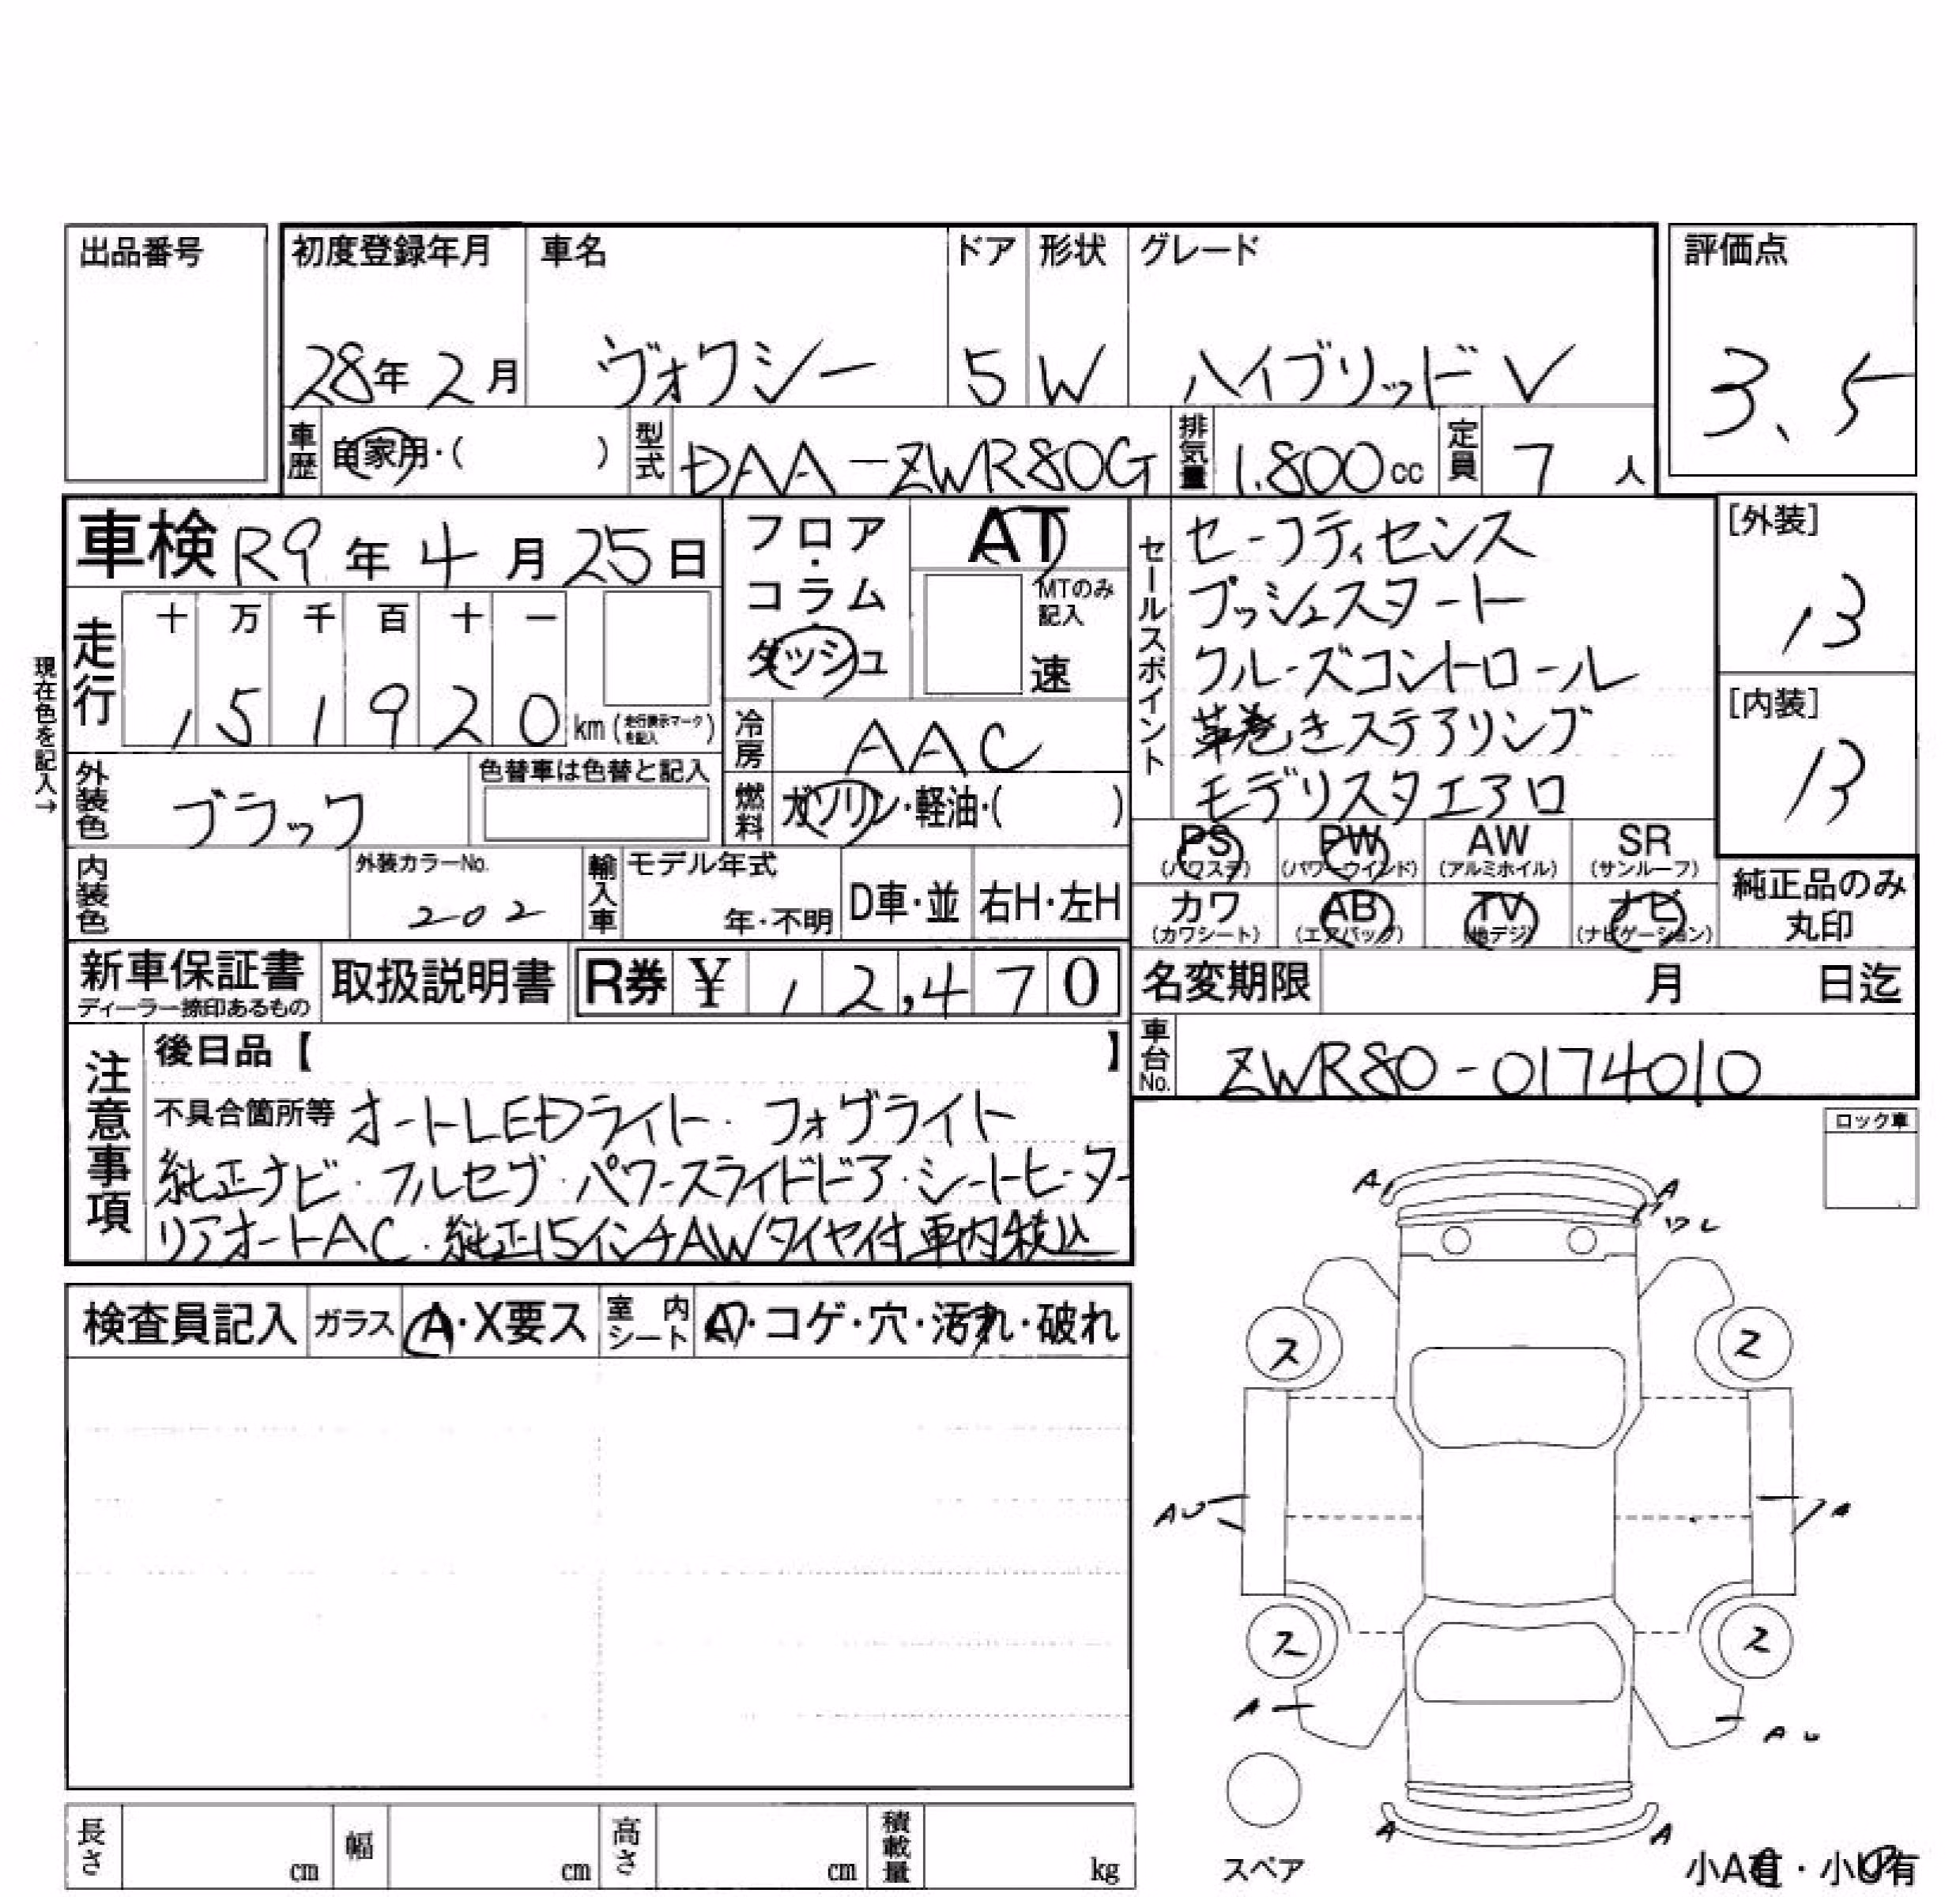 出品番号
初度登録年月 車名 ドア 形状 グレード 評価点
28年2月 ヴォクシー 5 W ハイブリッド V 3.5
車歴 自家用・( ) 型式 DAA-ZWR80G 排気量 1.800cc 定員 7人
車検 R9年4月25日
フロア・コラム・ダッシュ
AT
MTのみ記入
速
セールスポイント
セーフティセンス
プッシュスタート
クルーズコントロール
革巻きステアリング
モデリスタエアロ
[外装]
13
[内装]
13
現在色を記入→
走行 十 万 千 百 十 一
151920 km (走行表示マークを記入)
冷房 AAC
外装色 ブラック 色替車は色替と記入
燃料 ガソリン・軽油・( )
PS (パワステ) PW (パワーウインド) AW (アルミホイル) SR (サンルーフ)
カワ (カワシート) AB (エアバッグ) TV (地デジ) ナビ (ナビゲーション)
純正品のみ丸印
内装色 外装カラーNo. 202 輸入車 モデル年式 年・不明 D車・並 右H・左H
新車保証書 ディーラー捺印あるもの 取扱説明書 R券 ¥ 12,470
名変期限 月 日迄
車台No. ZWR80-0174010
注意事項
後日品【 】
不具合箇所等 オートLEDライト・フォグライト
純正ナビ・フルセグ・パワースライドドア・シートヒーター
リアオートAC・純正15インチAWタイヤ付車内積込
ロック車
検査員記入 ガラス A・X要ス 室内シート A・コゲ・穴・汚れ・破れ
A A
ワレ
ス ス
AU A
ス ス
A AU
A A
スペア
小A有・小U有
長さ cm 幅 cm 高さ cm 積載量 kg